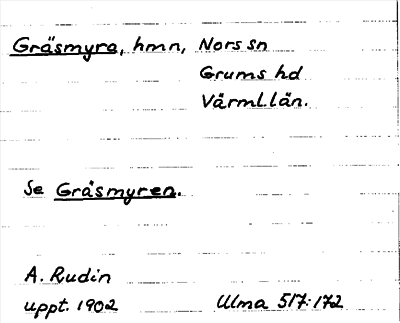 Gräsmyra, hmn, Nors sn
Grums hd
Värml.län.
Se Gräsmyren.
A. Rudin
uppt. 1902
Ulma 517:172